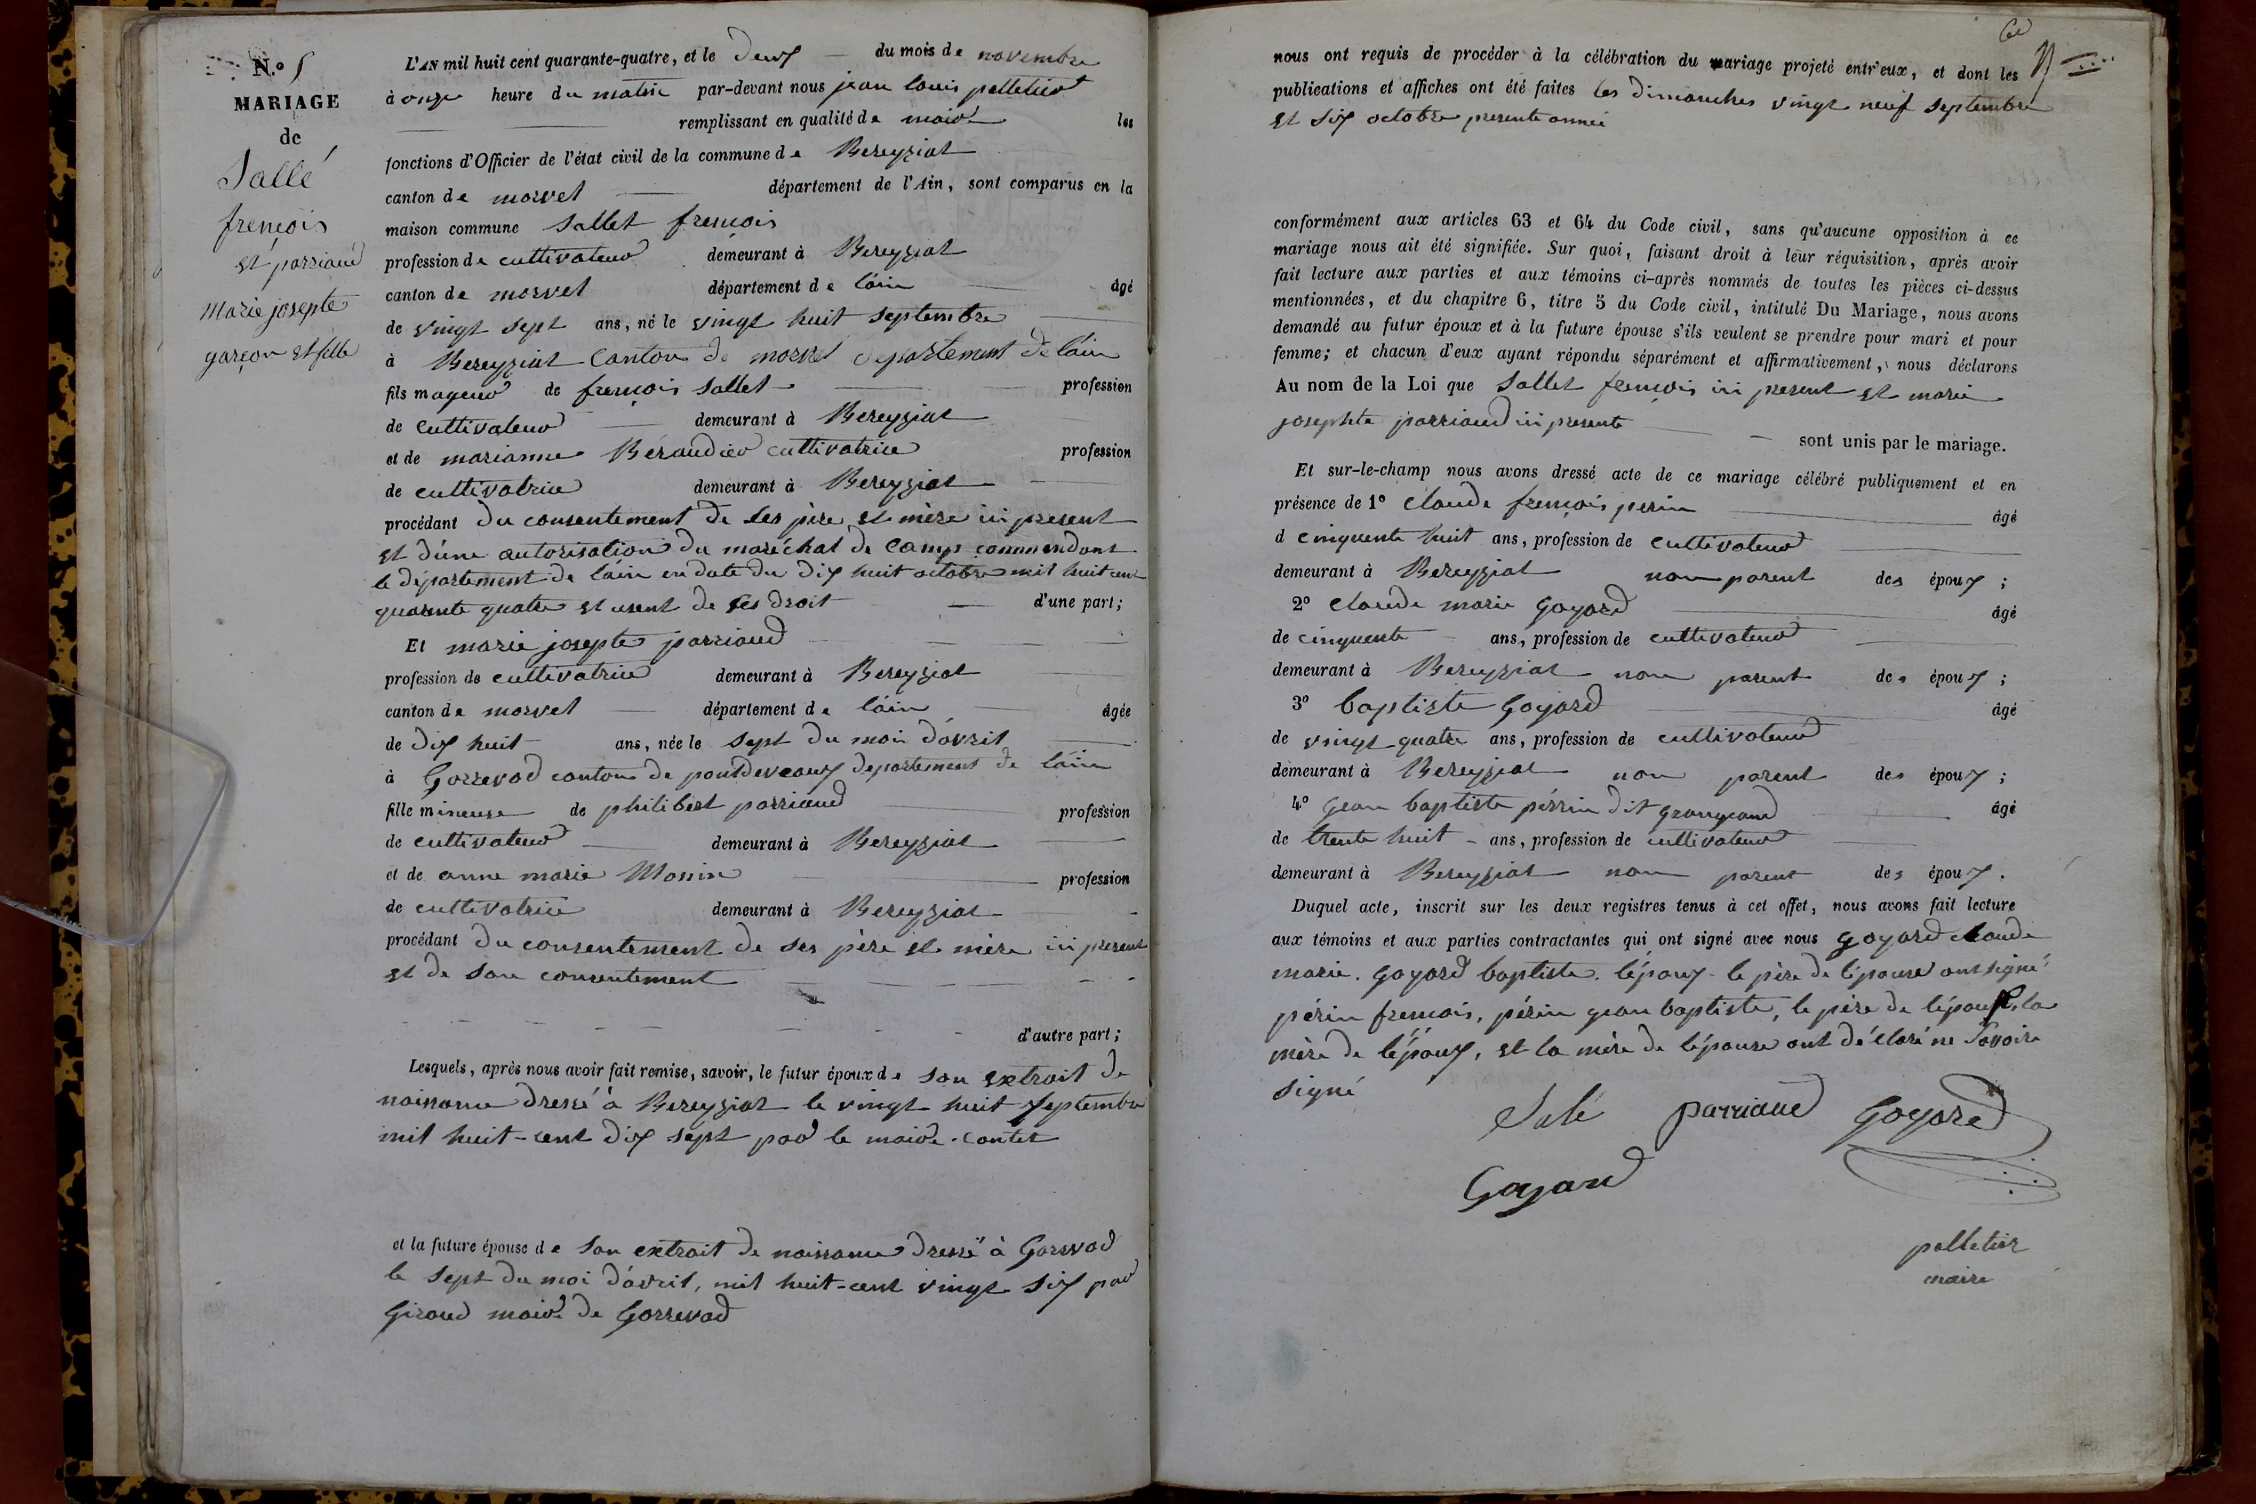 N.o 5
MARIAGE
de
Sallé
frençois
et parriaud
Marie josepte
garçon et fille
L'AN mil huit cent quarante-quatre, et le deux du mois de novembre
à onze heure du matin par-devant nous jean louis pelletier
remplissant en qualité de maire les
fonctions d'Officier de l'état civil de la commune de Bereyziat
canton de morvel département de l'Ain, sont comparus en la
maison commune Sallet frencois
profession de cultivateur demeurant à Bereyziat
canton de morvel département de láin âgé
de vingt sept ans, né le vingt huit septembre
à Bereyziat Canton de morvel département de láin
fils mageur de frencois Sallet profession
de cultivateur demeurant à Bereyziat
et de marianne Béraudier cultivatrice profession
de cultivatrice demeurant à Bereyziat
procédant du consentement de ses père et mère ici present
et d'une autorisation du maréchal de Camp commendant
le département de láin en date du dix huit octobre mil huit cent
quarente quatre et usent de ses droit d'une part;
Et marie josepte parriaud
profession de cultivatrice demeurant à Bereyziat
canton de morvel département de láin âgée
de dix huit ans, née le sept du moi dávril
à Gorrevod canton de pontdeveaux departement de láin
fille mineuse de philibert parriaud profession
de cultivateur demeurant à Bereyziat
et de anne marie Monin profession
de cultivatrice demeurant à Bereyziat
procédant du consentement de ses père et mère ici present
et de son consentement
d'autre part;
Lesquels, après nous avoir fait remise, savoir, le futur époux de son extrait de
naissance dressé à Bereyziat le vingt huit septembre
mil huit-cent dix sept par le maire contet
et la future épouse de son extrait de naissance dressé à Gorrevod
le sept du moi dávril, mil huit-cent vingt six par
Giraud maire de Gorrevod
nous ont requis de procéder à la célébration du mariage projeté entr'eux, et dont les
publications et affiches ont été faites les dimanches vingt neuf septembre
et six octobre presente année
conformément aux articles 63 et 64 du Code civil, sans qu'aucune opposition à ce
mariage nous ait été signifiée. Sur quoi, faisant droit à leur réquisition, après avoir
fait lecture aux parties et aux témoins ci-après nommés de toutes les pièces ci-dessus
mentionnées, et du chapitre 6, titre 5 du Code civil, intitulé Du Mariage, nous avons
demandé au futur époux et à la future épouse s'ils veulent se prendre pour mari et pour
femme; et chacun d'eux ayant répondu séparément et affirmativement, nous déclarons
Au nom de la Loi que Sallet frençois ici present et marie
josephte parriaud ici presente sont unis par le mariage.
Et sur-le-champ nous avons dressé acte de ce mariage célébré publiquement et en
présence de 1º Claude frençois perin âgé
d cinquente huit ans, profession de cultivateur
demeurant à Bereyziat non parent des époux;
2º Claude marie Goyard âgé
de cinquente ans, profession de cultivateur
demeurant à Bereyziat non parent des époux;
3º baptiste Goyard âgé
de vingt quatre ans, profession de cultivateur
demeurant à Bereyziat non parent des époux;
4º gean baptiste pérrin dit grangeand âgé
de trente huit ans, profession de cultivateur
demeurant à Bereyziat non parent des époux.
Duquel acte, inscrit sur les deux registres tenus à cet effet, nous avons fait lecture
aux témoins et aux parties contractantes qui ont signé avec nous goyard claude
marie. goyard baptiste. lépoux. le père de lépouse ont signé
périn frencois, périn gean baptiste, le père de lépoux, la
mère de lépoux, et la mère de lépouse ont déclaré ne savoire
signé
Salé parriaud Goyard
Goyard
pelletier
maire